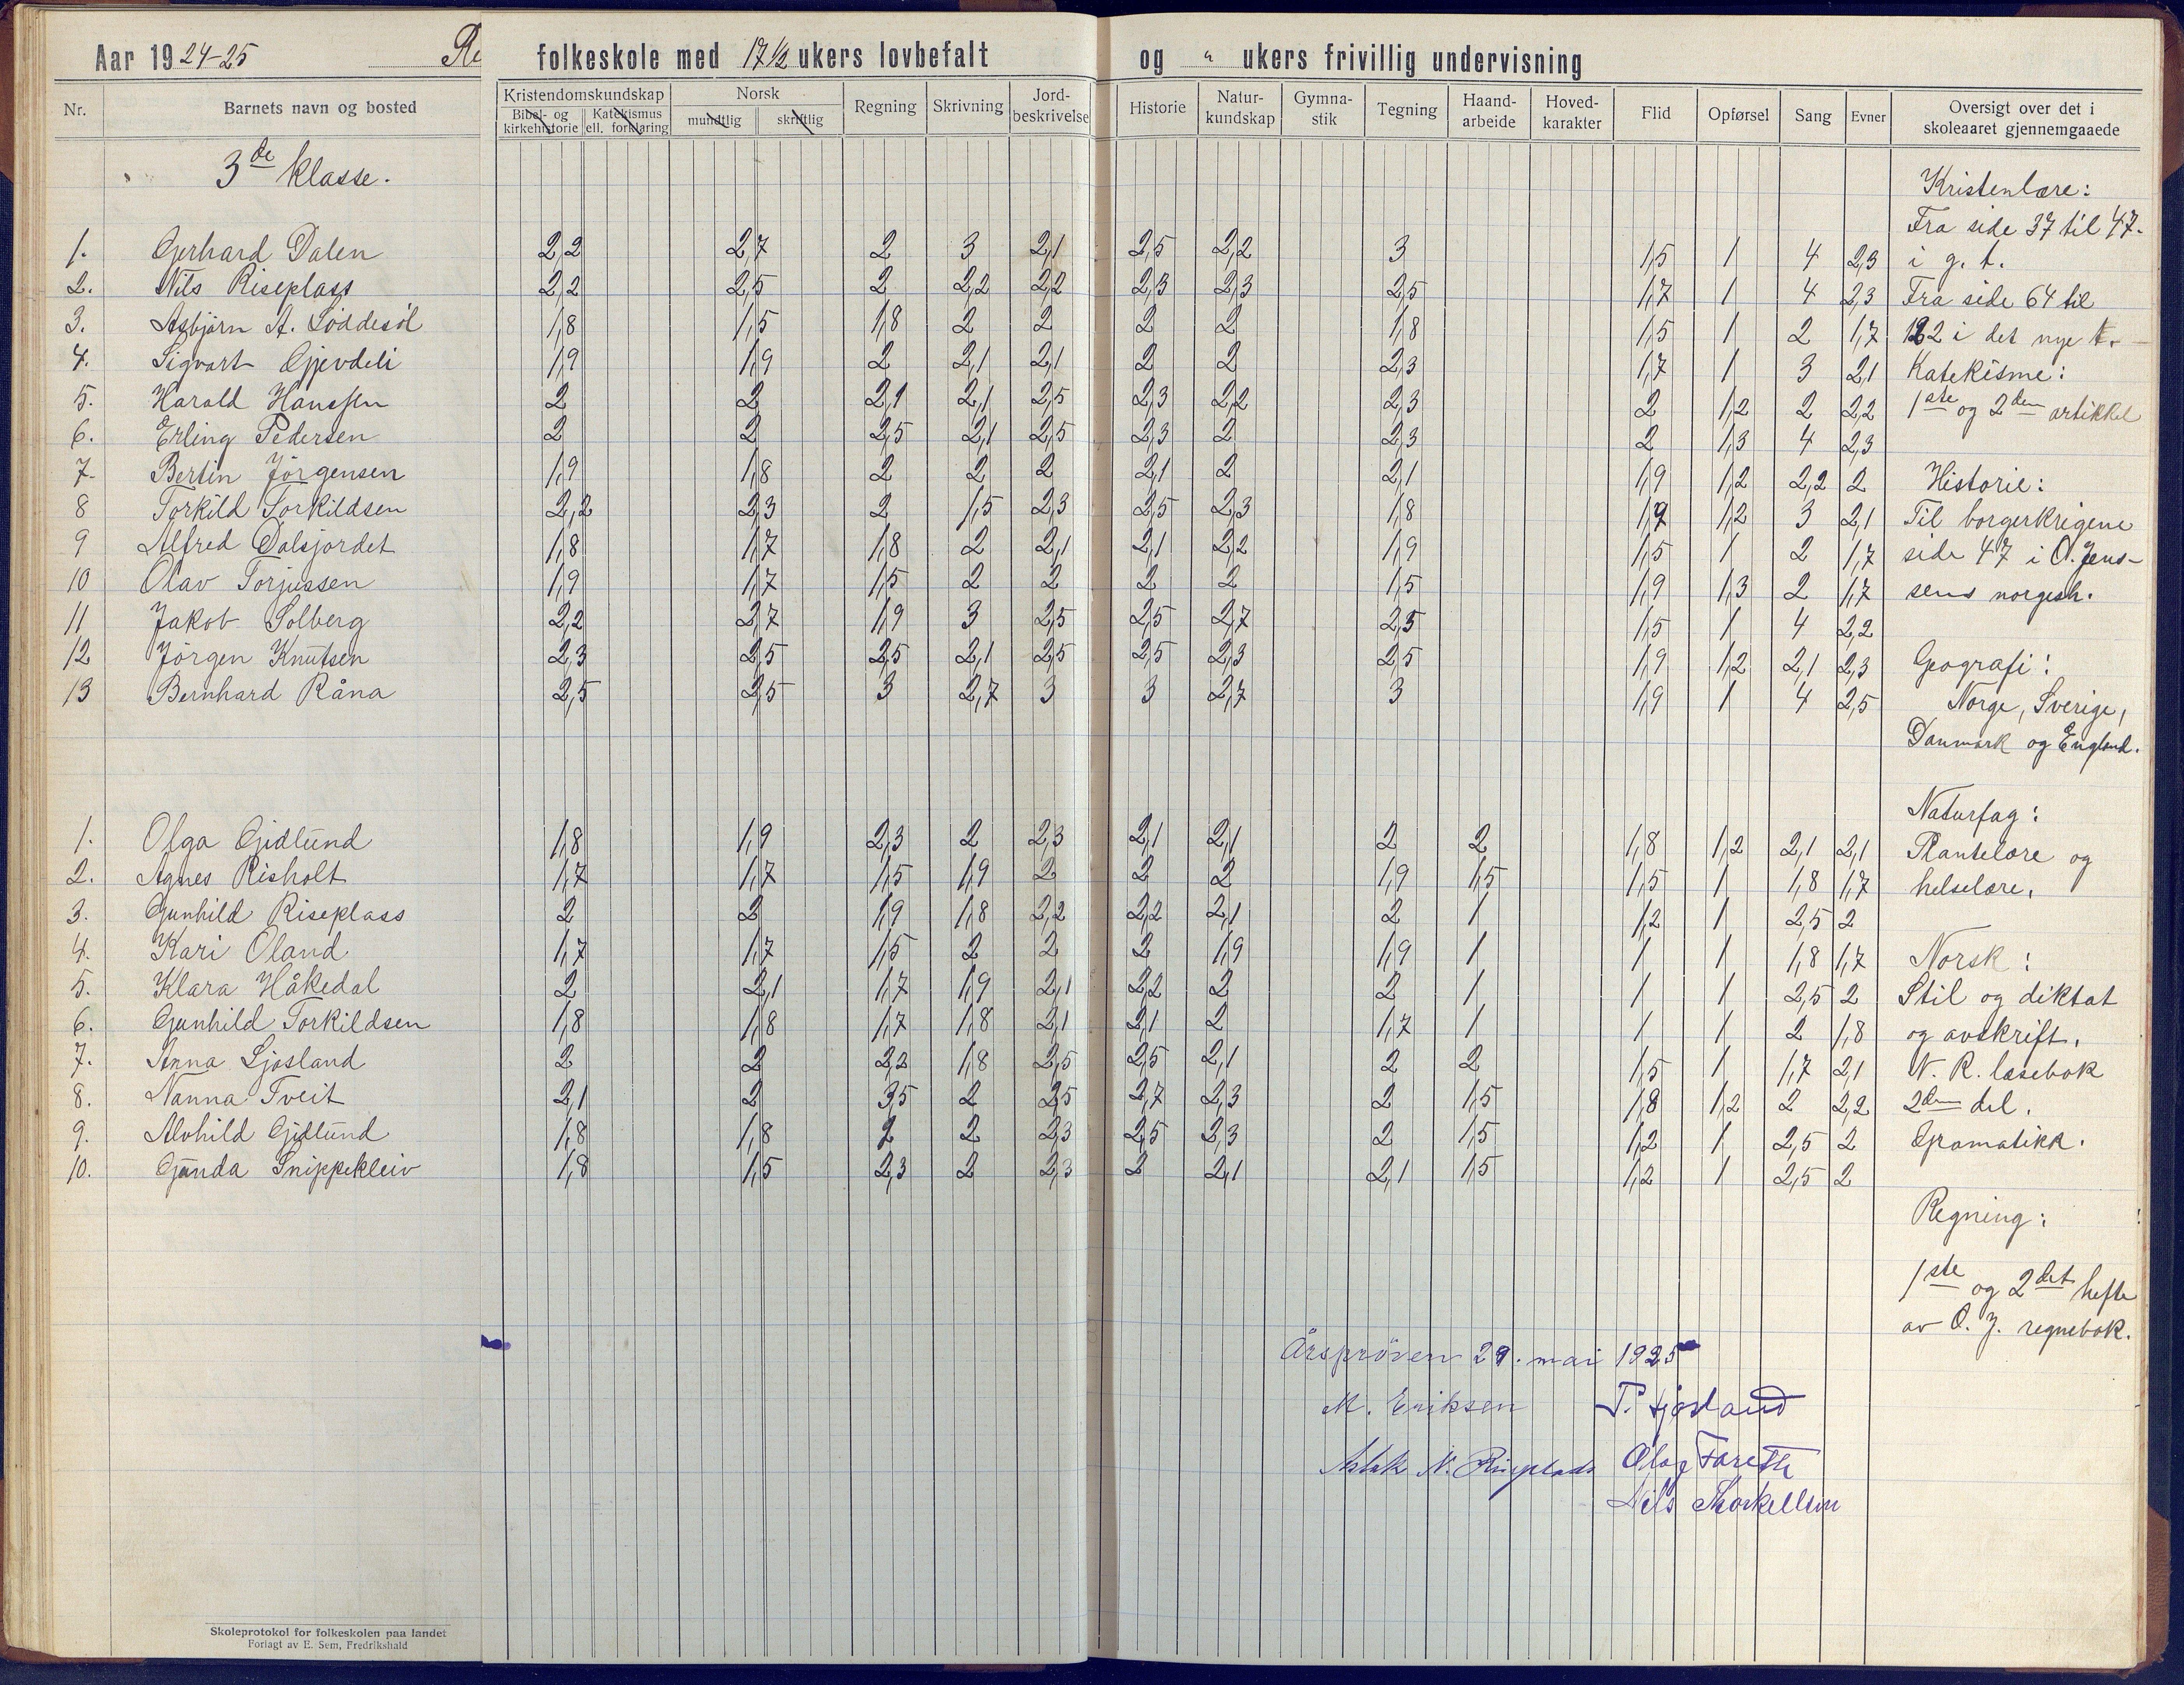 Aar 1924-25 Re folkeskole med 17 1/2 ukers lovbefalt og " ukers frivillig undervisning
Nr. Barnets navn og bosted Kristendomskundskap Bibel- og kirkehistorie Katekismus ell. forklaring Norsk mundtlig skriftlig Regning Skrivning Jord-beskrivelse Historie Natur-kundskap Gymna-stik Tegning Haand-arbeide Hoved-karakter Flid Opførsel Sang Evner Oversigt over det i skoleaaret gjennemgaaede
3de klasse.
1. Gerhard Dalen 2,2 2,7 2 3 2,1 2,5 2,2 3 1,5 1 4 2,3
2. Nils Riseplass 2,2 2,5 2 2,2 2,2 2,3 2,3 2,5 1,7 1 4 2,3
3. Asbjörn A. Löddesöl 1,8 1,5 1,8 2 2 2 2 1,8 1,5 1 2 1,7
4. Sigvart Gjevdeli 1,9 1,9 2 2,1 2,1 2 2 2,3 1,7 1 3 2,1
5. Harald Hanssen 2 2 2,1 2,1 2,5 2,3 2,2 2,3 2 1,2 2 2,2
6. Erling Pedersen 2 2 2,5 2,1 2,5 2,3 2 2,3 2 1,3 4 2,3
7. Bertin Jörgensen 1,9 1,8 2 2 2 2,1 2 2,1 1,9 1,2 2,2 2
8 Torkild Torkildsen 2,2 2,3 2 1,5 2,3 2,5 2,3 1,8 1,9 1,2 3 2,1
9 Alfred Dalsjordet 1,8 1,7 1,8 2 2,1 2,1 2,2 1,9 1,5 1 2 1,7
10 Olav Torjussen 1,9 1,7 1,5 2 2 2 2 1,5 1,9 1,3 2 1,7
11 Jakob Solberg 2,2 2,7 1,9 3 2,5 2,5 2,7 2,5 1,5 1 4 2,2
12 Jörgen Knutsen 2,3 2,5 2,5 2,1 2,5 2,5 2,3 2,5 1,9 1,2 2,1 2,3
13 Bernhard Råna 2,5 2,5 3 2,7 3 3 2,7 3 1,9 1 4 2,5
1. Olga Gidlund 1,8 1,9 2,3 2 2,3 2,1 2,1 2 2 1,8 1,2 2,1 2,1
2. Agnes Risholt 1,7 1,7 1,5 1,9 2 2 2 1,9 1,5 1,5 1 1,8 1,7
3. Gunhild Riseplass 2 2 1,9 1,8 2,2 2,2 2,1 2 1 1,2 1 2,5 2
4. Kari Öland 1,7 1,7 1,5 2 2 2 1,9 1,9 1 1 1 1,8 1,7
5. Klara Håkedal 2 2,1 1,7 1,9 2,1 2,2 2 2 1 1 1 2,5 2
6. Gunhild Torkildsen 1,8 1,8 1,7 1,8 2,1 2,1 2 1,7 1 1 1 2 1,8
7. Anna Ljosland 2 2 2,2 1,8 2,5 2,5 2,1 2 2 1,5 1 1,7 2,1
8. Nanna Tveit 2,1 2 3,5 2 2,5 2,7 2,3 2 1,5 1,8 1,2 2 2,2
9. Alvhild Gidlund 1,8 1,8 2 2 2,3 2,5 2,3 2 1,5 1,2 1 2,5 2
10. Gunda Snippekleiv 1,8 1,5 2,3 2 2,3 2 2,1 2,1 1,5 1,2 1 2,5 2
Kristenlære:
Fra side 37 til 47.
i g. t.
Fra side 64 til
122 i det nye t.
Katekisme:
1ste og 2den artikkel
Historie:
Til borgerkrigene
side 47 i O. Jens-
sens norgesh.
Geografi:
Norge, Sverige,
Danmark og England.
Naturfag:
Plantelære og
helselære.
Norsk:
Stil og diktat
og avskrift.
N. R. læsebok
2den del.
Gramatikk.
Regning:
1ste og 2det hefte
av O. J. regnebok.
Årspröven 29. mai 1925
M. Eriksen T. Ljosland
Aslak N. Riseplads Olav Fareth
Nils Thorkellsen
Skoleprotokol for folkeskolen paa landet
Forlagt av E. Sem, Fredrikshald